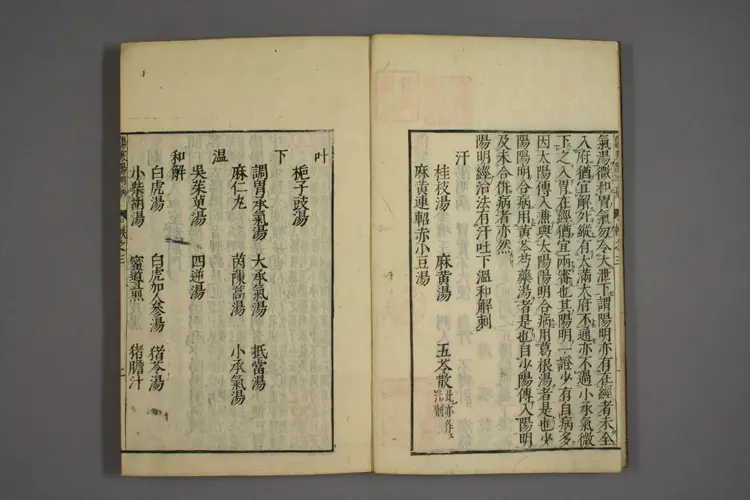 氣湯微和胃氣勿令大泄下謂陽明亦有在經者未全
入府猶宜解外縱有大滿大府不通亦不過小承氣微
下之入胃在經猶宜兩審也其陽明一證少有自病多
因太陽傳入兼與太陽陽明合病用葛根湯者是也少
陽陽明合病用黃芩芍藥湯者是也自少陽傳入陽明
及未合併病者亦然
陽明經治法有汗吐下溫和解刺
汗
桂枝湯 麻黃湯 五苓散 此亦作
麻黃連軺赤小豆湯
吐
梔子豉湯
下
調胃承氣湯 大承氣湯 抵當湯
麻仁丸 茵蔯蒿湯 小承氣湯
溫
吳茱萸湯 四逆湯
和解
白虎湯 白虎加人參湯 豬苓湯
小柴胡湯 蜜導煎 豬膽汁